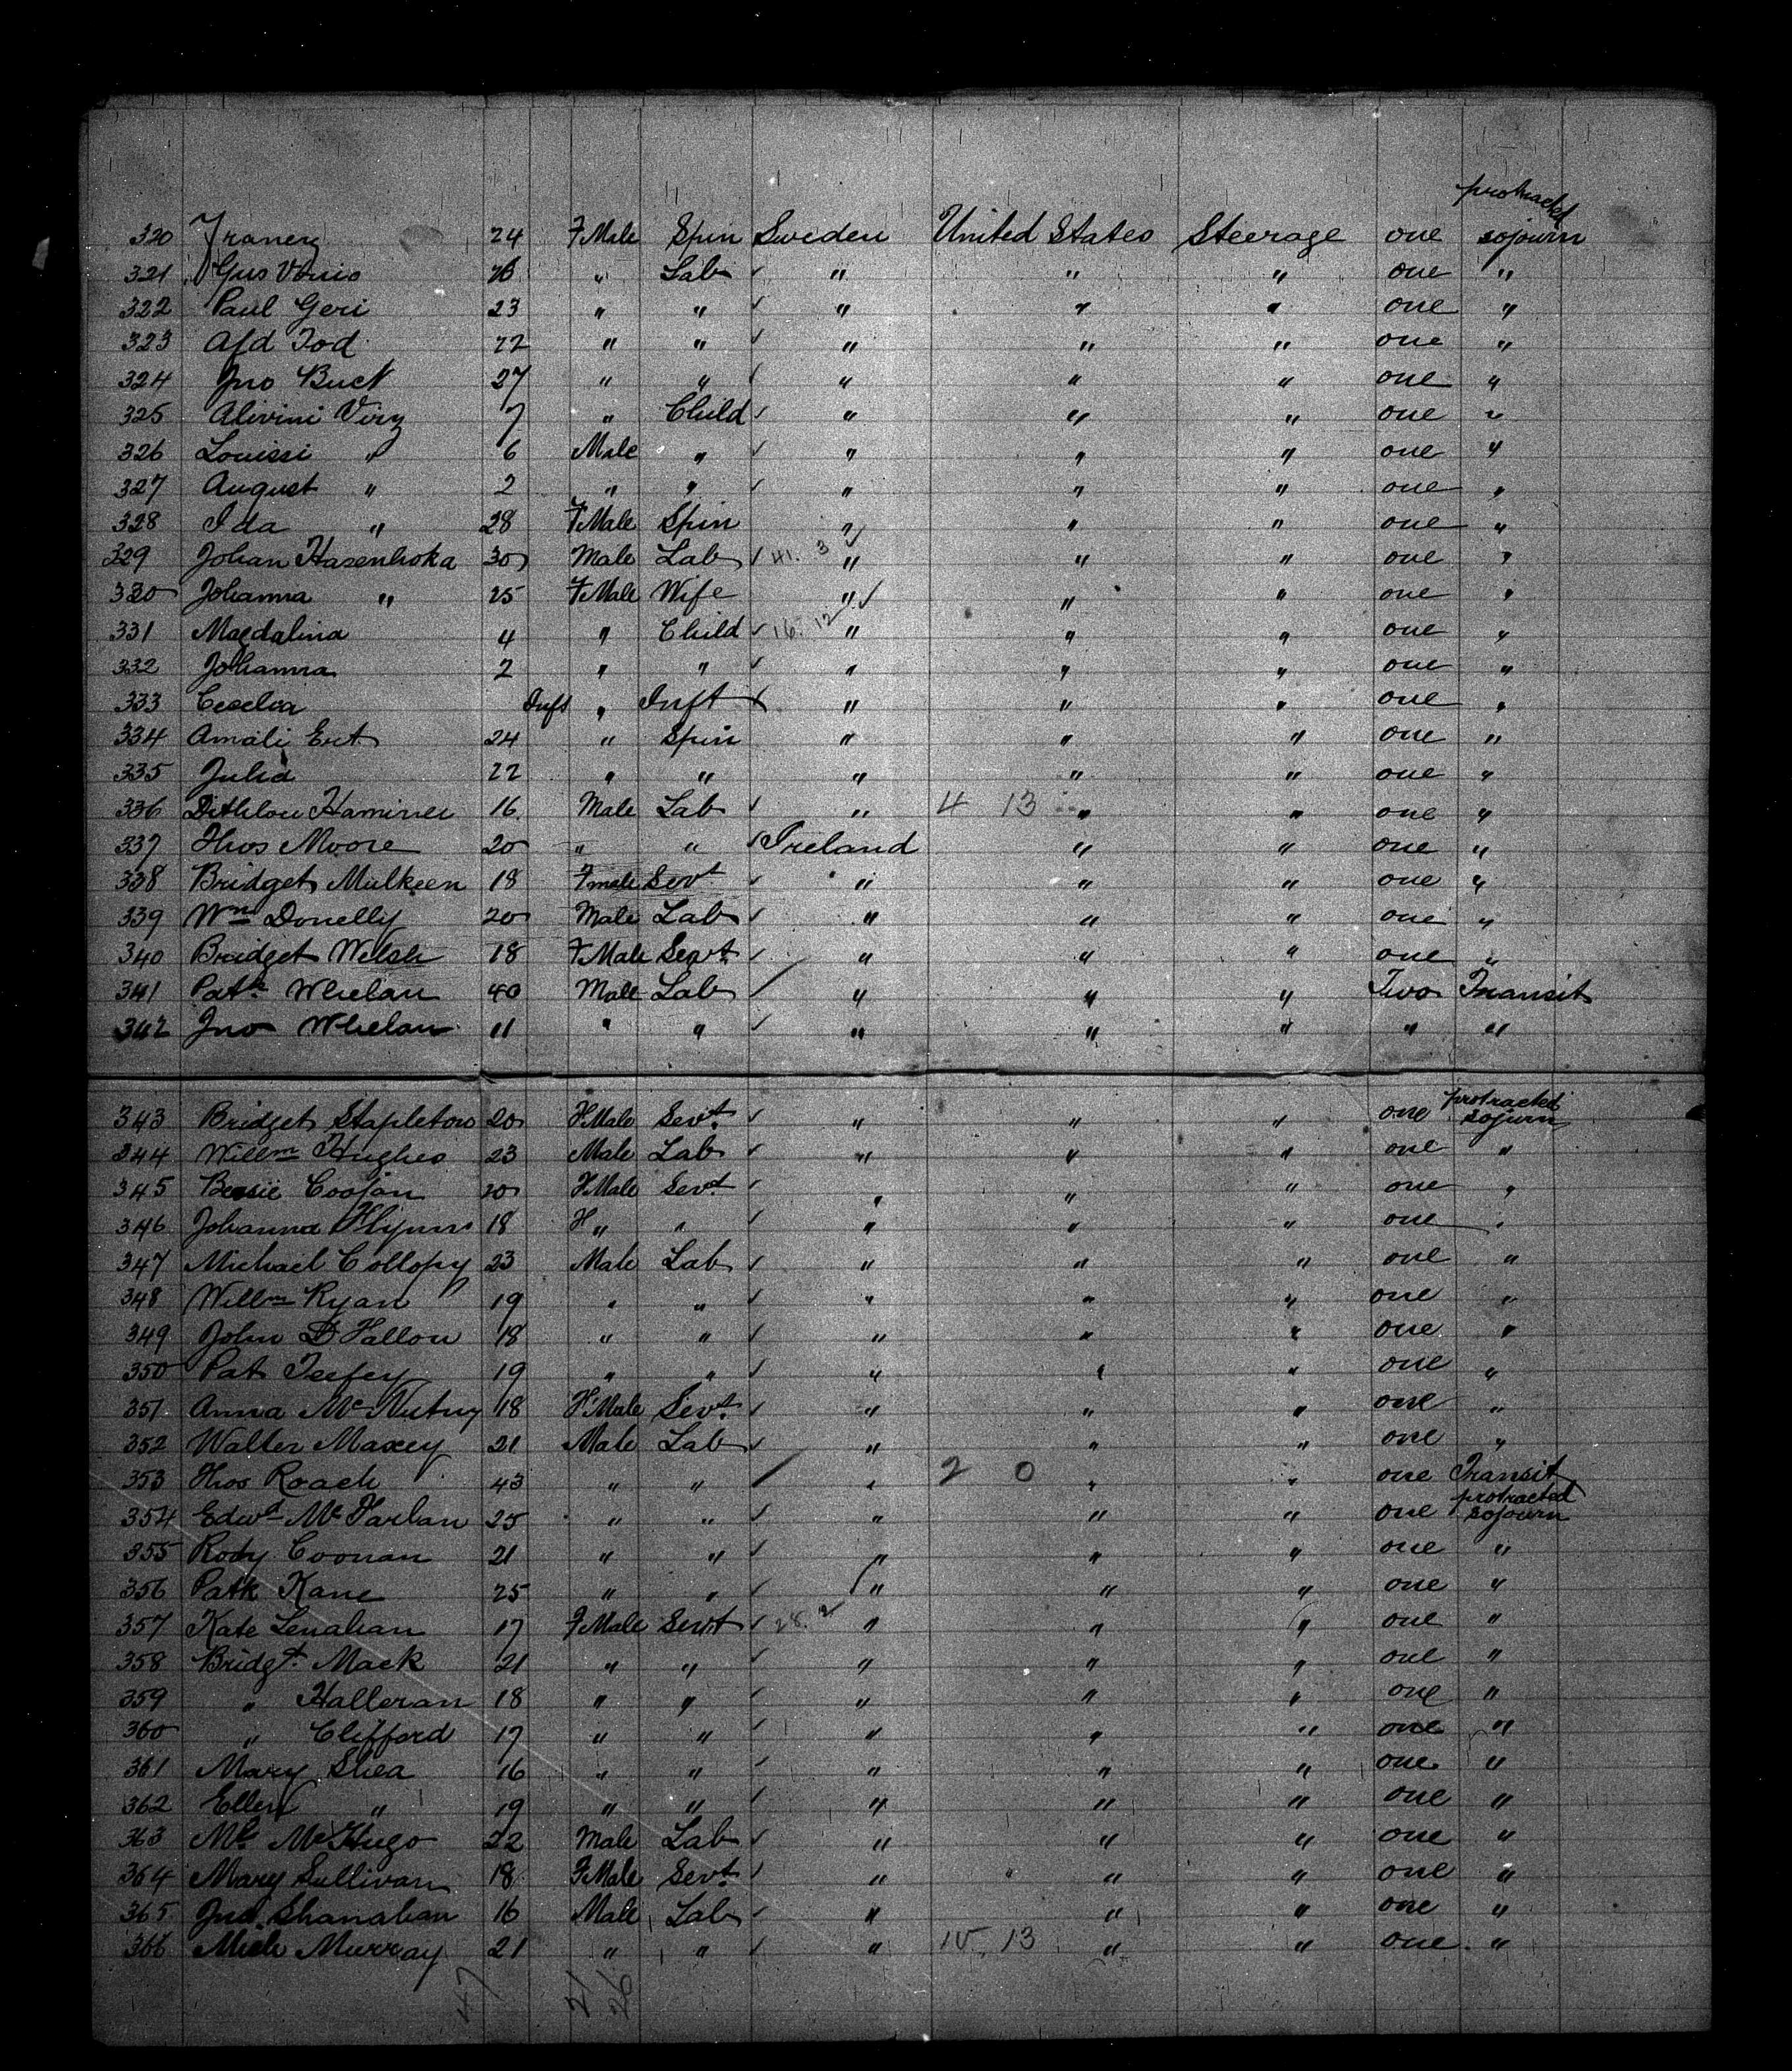 protracted
320 Franery 24 FMale Spin Sweden United States Steerage one sojourn
321 Gus Vonis 26 " Lab ✓ " " " one "
322 Paul Geri 23 " " ✓ " " " one "
323 Afd Tod 22 " " ✓ " " " one "
324 Jno Buck 27 " " ✓ " " " one "
325 Alivini Virz 7 " Child ✓ " " " one "
326 Louissi " 6 Male " ✓ " " " one "
327 August " 2 " " ✓ " " " one "
328 Ida " 28 FMale Spin " ✓ " " one "
329 Johan Hasenhoka 30 Male Lab ✓ 41. 3 " " " one "
330 Johanna " 25 FMale Wife " ✓ " " one "
331 Magdalina 4 " Child ✓ 16. 12 " " " one "
332 Johanna 2 " " ✓ " " " one "
333 Ceselia Inft " Inft ✓ " " " one "
334 Amali Ert 24 " Spin " " " one "
335 Julia 22 " " " " " one "
336 Haminer 16 Male Lab ✓ " 4 13 " " one "
337 Thos Moore 20 " " ✓ Ireland " " one "
338 Bridget Mulkeen 18 Fmale Servt ✓ " " " one "
339 Wm Donelly 20 Male Lab ✓ " " " one "
340 Bridget Welsh 18 FMale Servt ✓ " " " one "
341 Patk Whelan 40 Male Lab ✓ " " " Two Transit
342 Jno Whelan 11 " " ✓ " " " " "
343 Bridget Stapleton 20 FMale Servt ✓ " " " one protracted sojourn
344 Willm Hughes 23 Male Lab ✓ " " " one "
345 Bessie Coojan 20 FMale Servt ✓ " " " one "
346 Johanna Flynn 18 F " " ✓ " " " one "
347 Michael Collopy 23 Male Lab ✓ " " " one "
348 Willm Ryan 19 " " ✓ " " " one "
349 John D Fallon 18 " " ✓ " " " one "
350 Pat Teefey 19 " " ✓ " " " one "
351 Anna Mc Nutny 18 FMale Servt ✓ " " " one "
352 Walter Maxey 21 Male Lab ✓ " " " one "
353 Thos Roach 43 " " ✓ " 2 0 " " one Transit
354 Edwd Mc Farlan 25 " " ✓ " " " one protracted sojourn
355 Rody Coonan 21 " " ✓ " " " one "
356 Patk Kane 25 " " ✓ " " " one "
357 Kate Lenahan 17 FMale Servt ✓ 28. 2 " " " one "
358 Bridgt Mack 21 " " ✓ " " " one "
359 " Halleran 18 " " ✓ " " " one "
360 " Clifford 17 " " ✓ " " " one "
361 Mary Shea 16 " " ✓ " " " one "
362 Ellen " 19 " " ✓ " " " one "
363 Ml Mc Hugo 22 Male Lab ✓ " " " one "
364 Mary Sullivan 18 FMale Servt ✓ " " " one "
365 Jno Shanahan 16 Male Lab ✓ " " " one "
366 Mich Murray 21 " " ✓ " 10. 13 " " one "
47 21 26